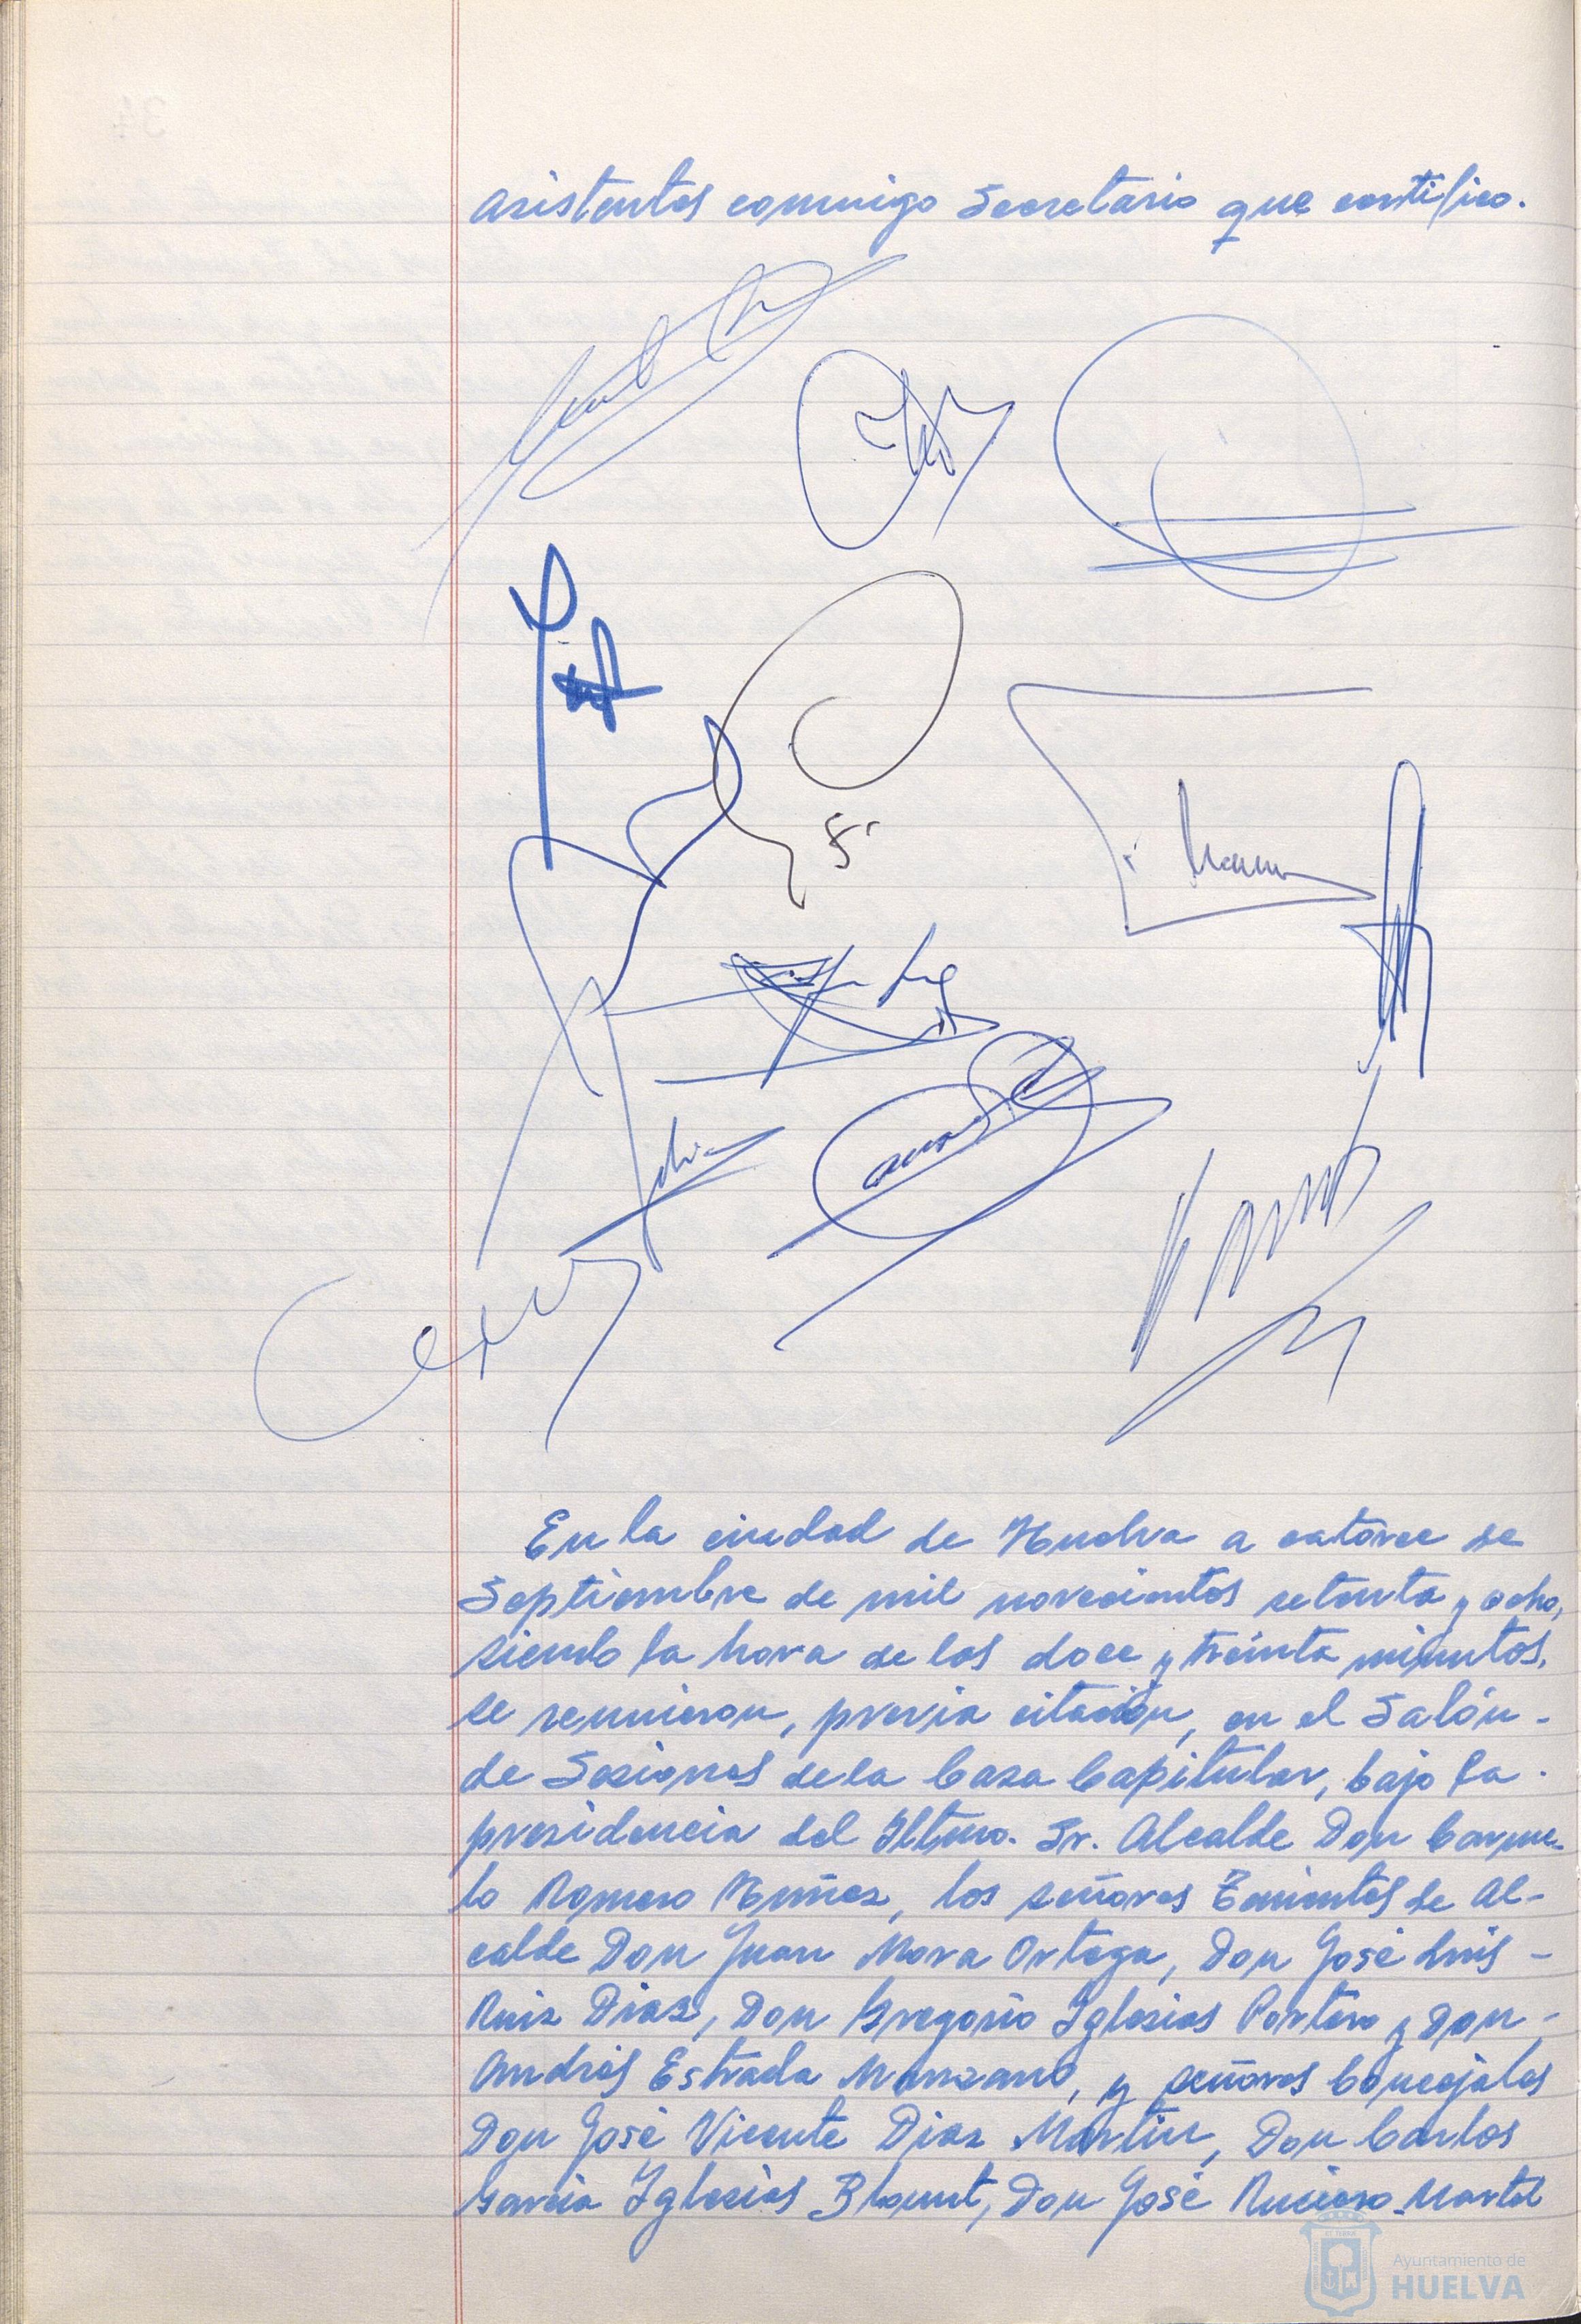 asistentes conmigo Secretario que certifico.
En la ciudad de Huelva a catorce de
Septiembre de mil novecientos setenta y ocho,
siendo la hora de las doce y treinta minutos,
se reunieron, previa citación, en el Salón -
de Sesiones de la Casa Capitular, bajo la -
presidencia del Iltmo. Sr. Alcalde Don Carme-
lo Romero Núñez, los señores Tenientes de Al-
calde Don Juan Mora Ortega, Don José Luis -
Ruiz Diaz, Don Gregorio Iglesias Portero y Don -
Andrés Estrada Manzano, y señores Concejales
Don José Vicente Diaz Martin, Don Carlos
Garcia Iglesias Blount, Don José Martel
Ayuntamiento de
HUELVA